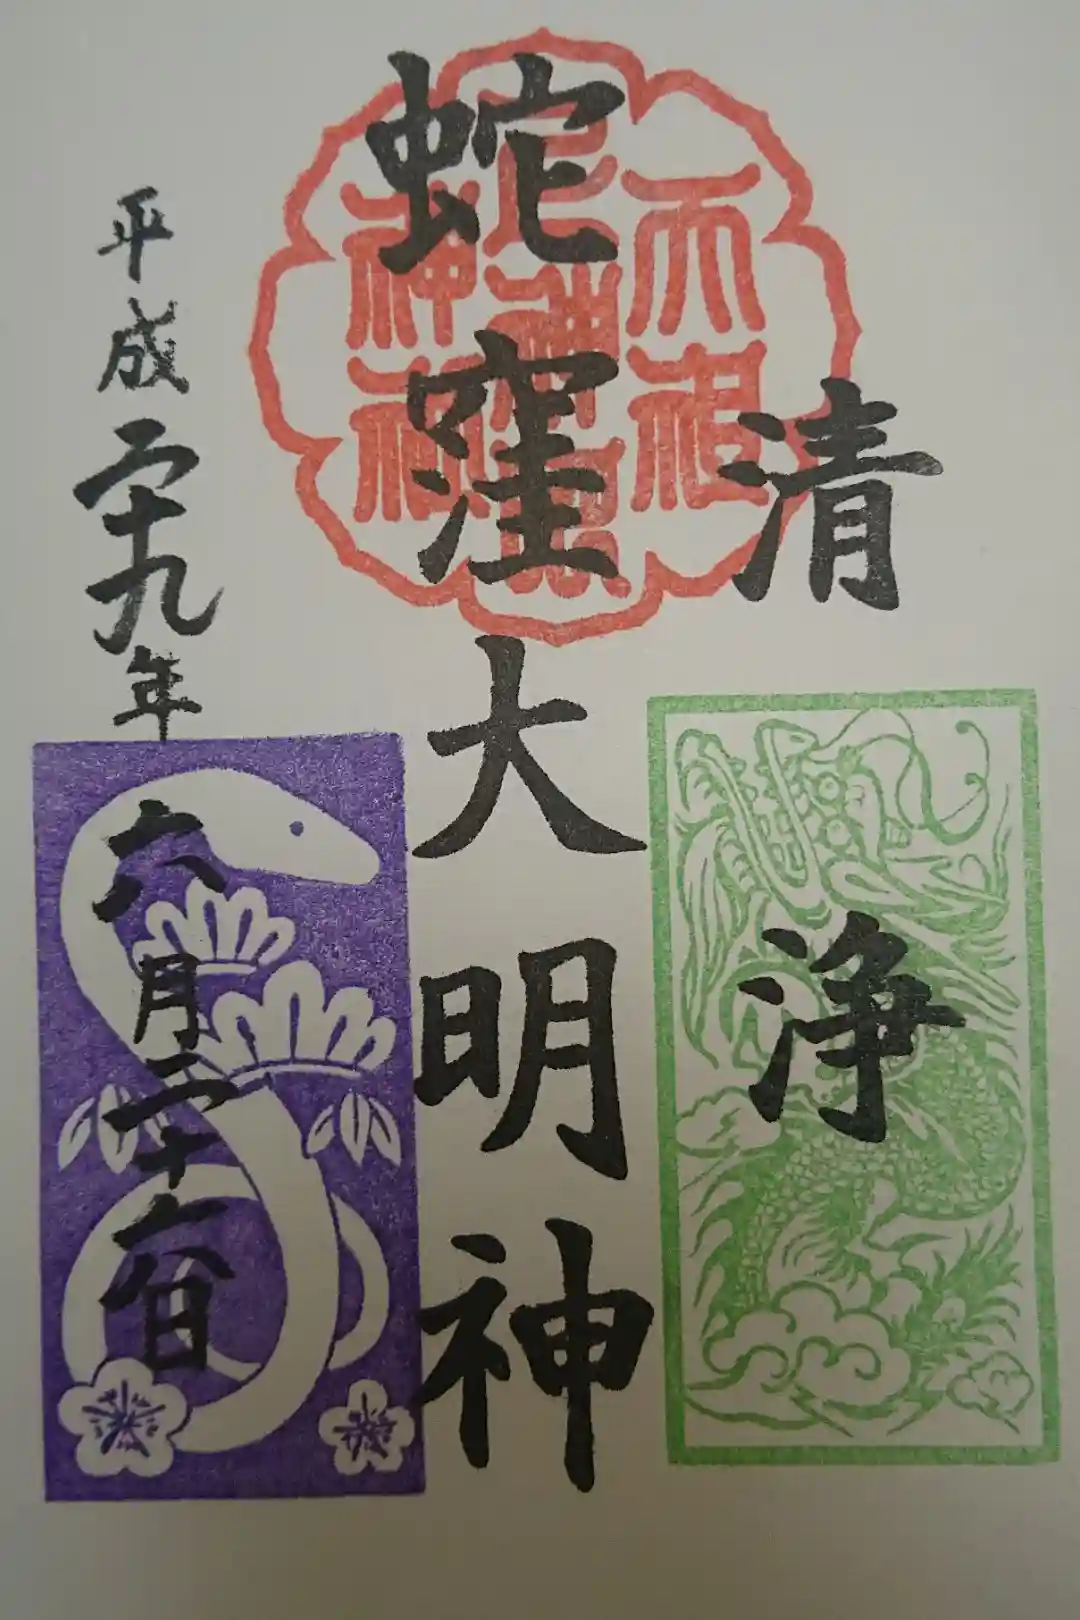 清浄
蛇窪大明神
平成二十九年六月二十六日
天祖
神社